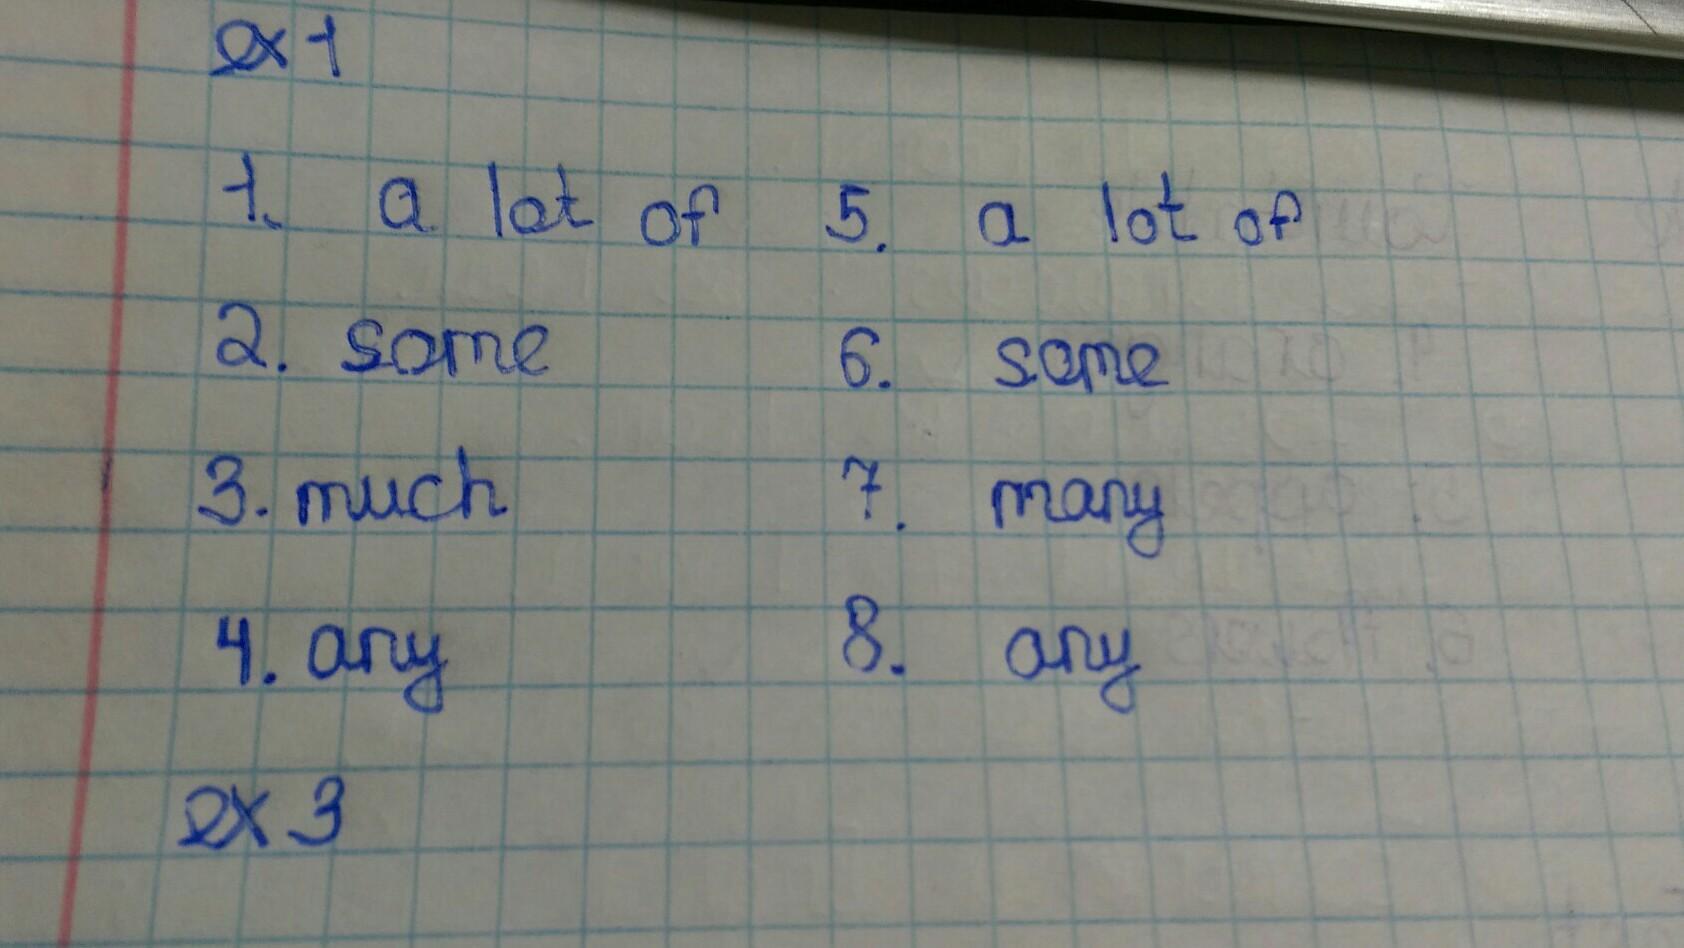 ex 1
1. a lot of 5. a lot of
2. some 6. some
3. much 7. many
4. any 8. any
ex 3